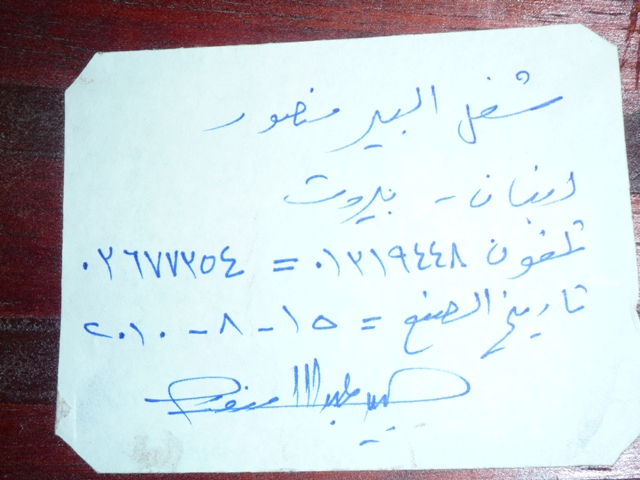 شغل البير منصور
لبنان - بيروت
تلفون ٠١٣١٩٤٤٨ = ٠٣٦٧٧٣٥٤
تاريخ الصنع = ١٥ - ٨ - ٢٠١٠